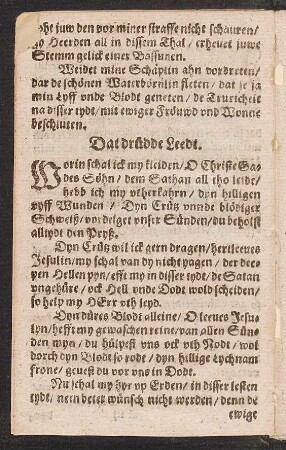 juw den vor miner straffe nicht schauren/
Heerden all in dissem Thal / erheuet juwe
Stemm gelick einer Bassunen.
Weidet mine Schäplin ahn vordreten/
dar de schönen Waterbörnlin fleten/ dat je ja
min Lyff vnde Blodt geneten/ de Trurichcit
na disser tydt/ mit ewiger Fröuwd vnd Wonne
beschluten.
Dat drüdde Leedt.
WOrin schal ick my kleiden/ O Christe Ga-
des Söhn/ dem Sathan all tho leide/
hebb ick my vtherkahrn/ dyn hilligen
vyff Wunden/ Dyn Crütz vnnde blödiger
Schweiß/ vordelget vnser Sünden/ du beholst
alltydt den Pryß.
Dyn Crütz wil ick gern dragen/ hertleeues
Jesulin/ my schal van dy nicht yagen/ der dee-
pen Hellen pyn/ efft my in disser tydt/ de Satan
vngehüre/ ock Hell vnde Dodt wold scheiden/
so help my HErr vth leyd.
Dyn düres Blodt alleine/ O leeues Jesu-
lyn/ hefft my gewaschen reine/ van allen Sün-
den myn/ du hülpest vns vth Nodt/ wol
dorch dyn Blodt so rode/ dyn hillige Lychnam
frone/ geuest du vor vns in Dodt.
Nu schal my hyr vp Erden/ in disser lesten
tydt/ nein beter wünsch nicht werden/ denn de
ewige